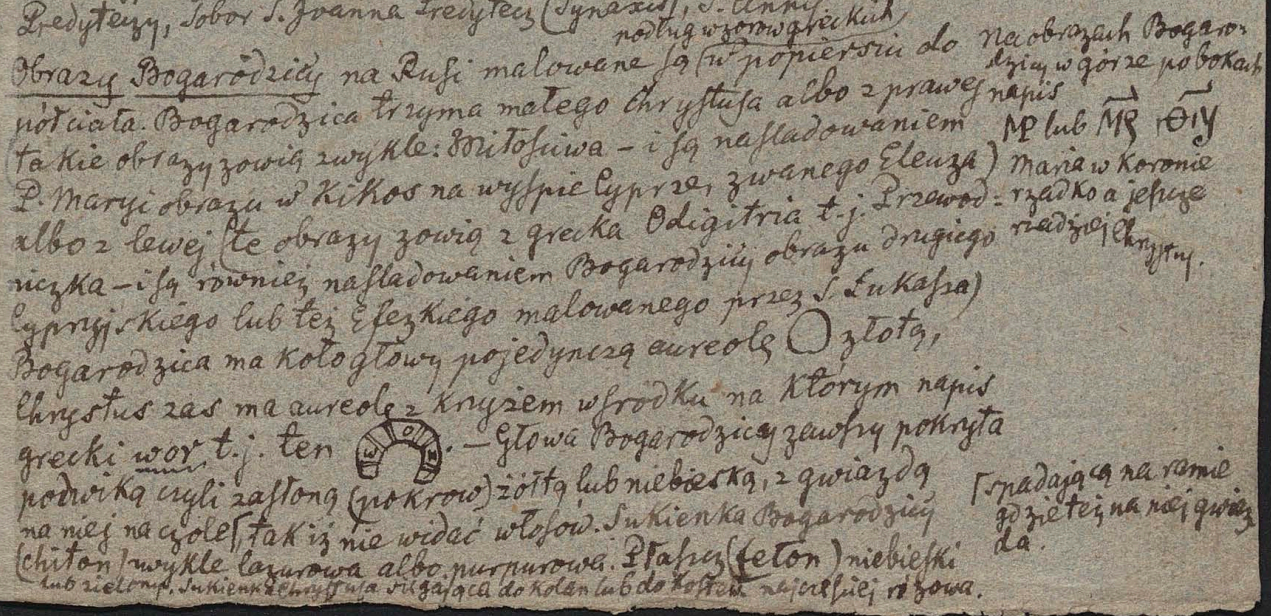 Predyteczy, Sobor S. Joanna Predytecz (Synaxis), S. Anny
podług wzorow greckich
Obrazy Bogarodzicy na Rusi malowane są (w popiersiu do
półciała. Bogarodzica trzyma małego Chrystusa albo z prawej
(takie obrazy zowią zwykle: Miłosciwa – i są nasladowaniem
P. Maryi obrazu w Kikos na wyspie Cyprze, zwanego Eleuza)
albo z lewej (te obrazy zowią z grecka Odigitria t. j. Przewod=
niczka – i są rowniez nasladowaniem Bogarodzicy obrazu drugiego
Cypryjskiego lub też Efezkiego malowanego przez S. Łukasza)
Bogarodzica ma koło głowy pojedynczą aureolę O złotą,
Chrystus zas ma aureolę z krzyżem w srodku na którym napis
grecki wor t. j. ten . – Głowa Bogarodzicy zawszy pokryta
podwiką czyli zasłoną (pokrow) żółtą lub niebieską, z gwiazdą
na niej na czole⌈, tak iż nie widać włosów. Sukienka Bogarodzicy
(chiton) zwykle lazurowa albo purpurowa. Płaszcz (felon) niebieski
lub zielony. Sukienka Chrystusa sięgająca do kolan lub do kostek najczęsciej rózowa.
Na obrazach Bogaro=
dzicy w górze po bokach
napis
MP lub MP ΘΥ
Maria w koronie
rzadko a jeszcze
rzadziej Chrystus.
⌈spadającą na ramie
gdzie też na niej gwiaz
da.